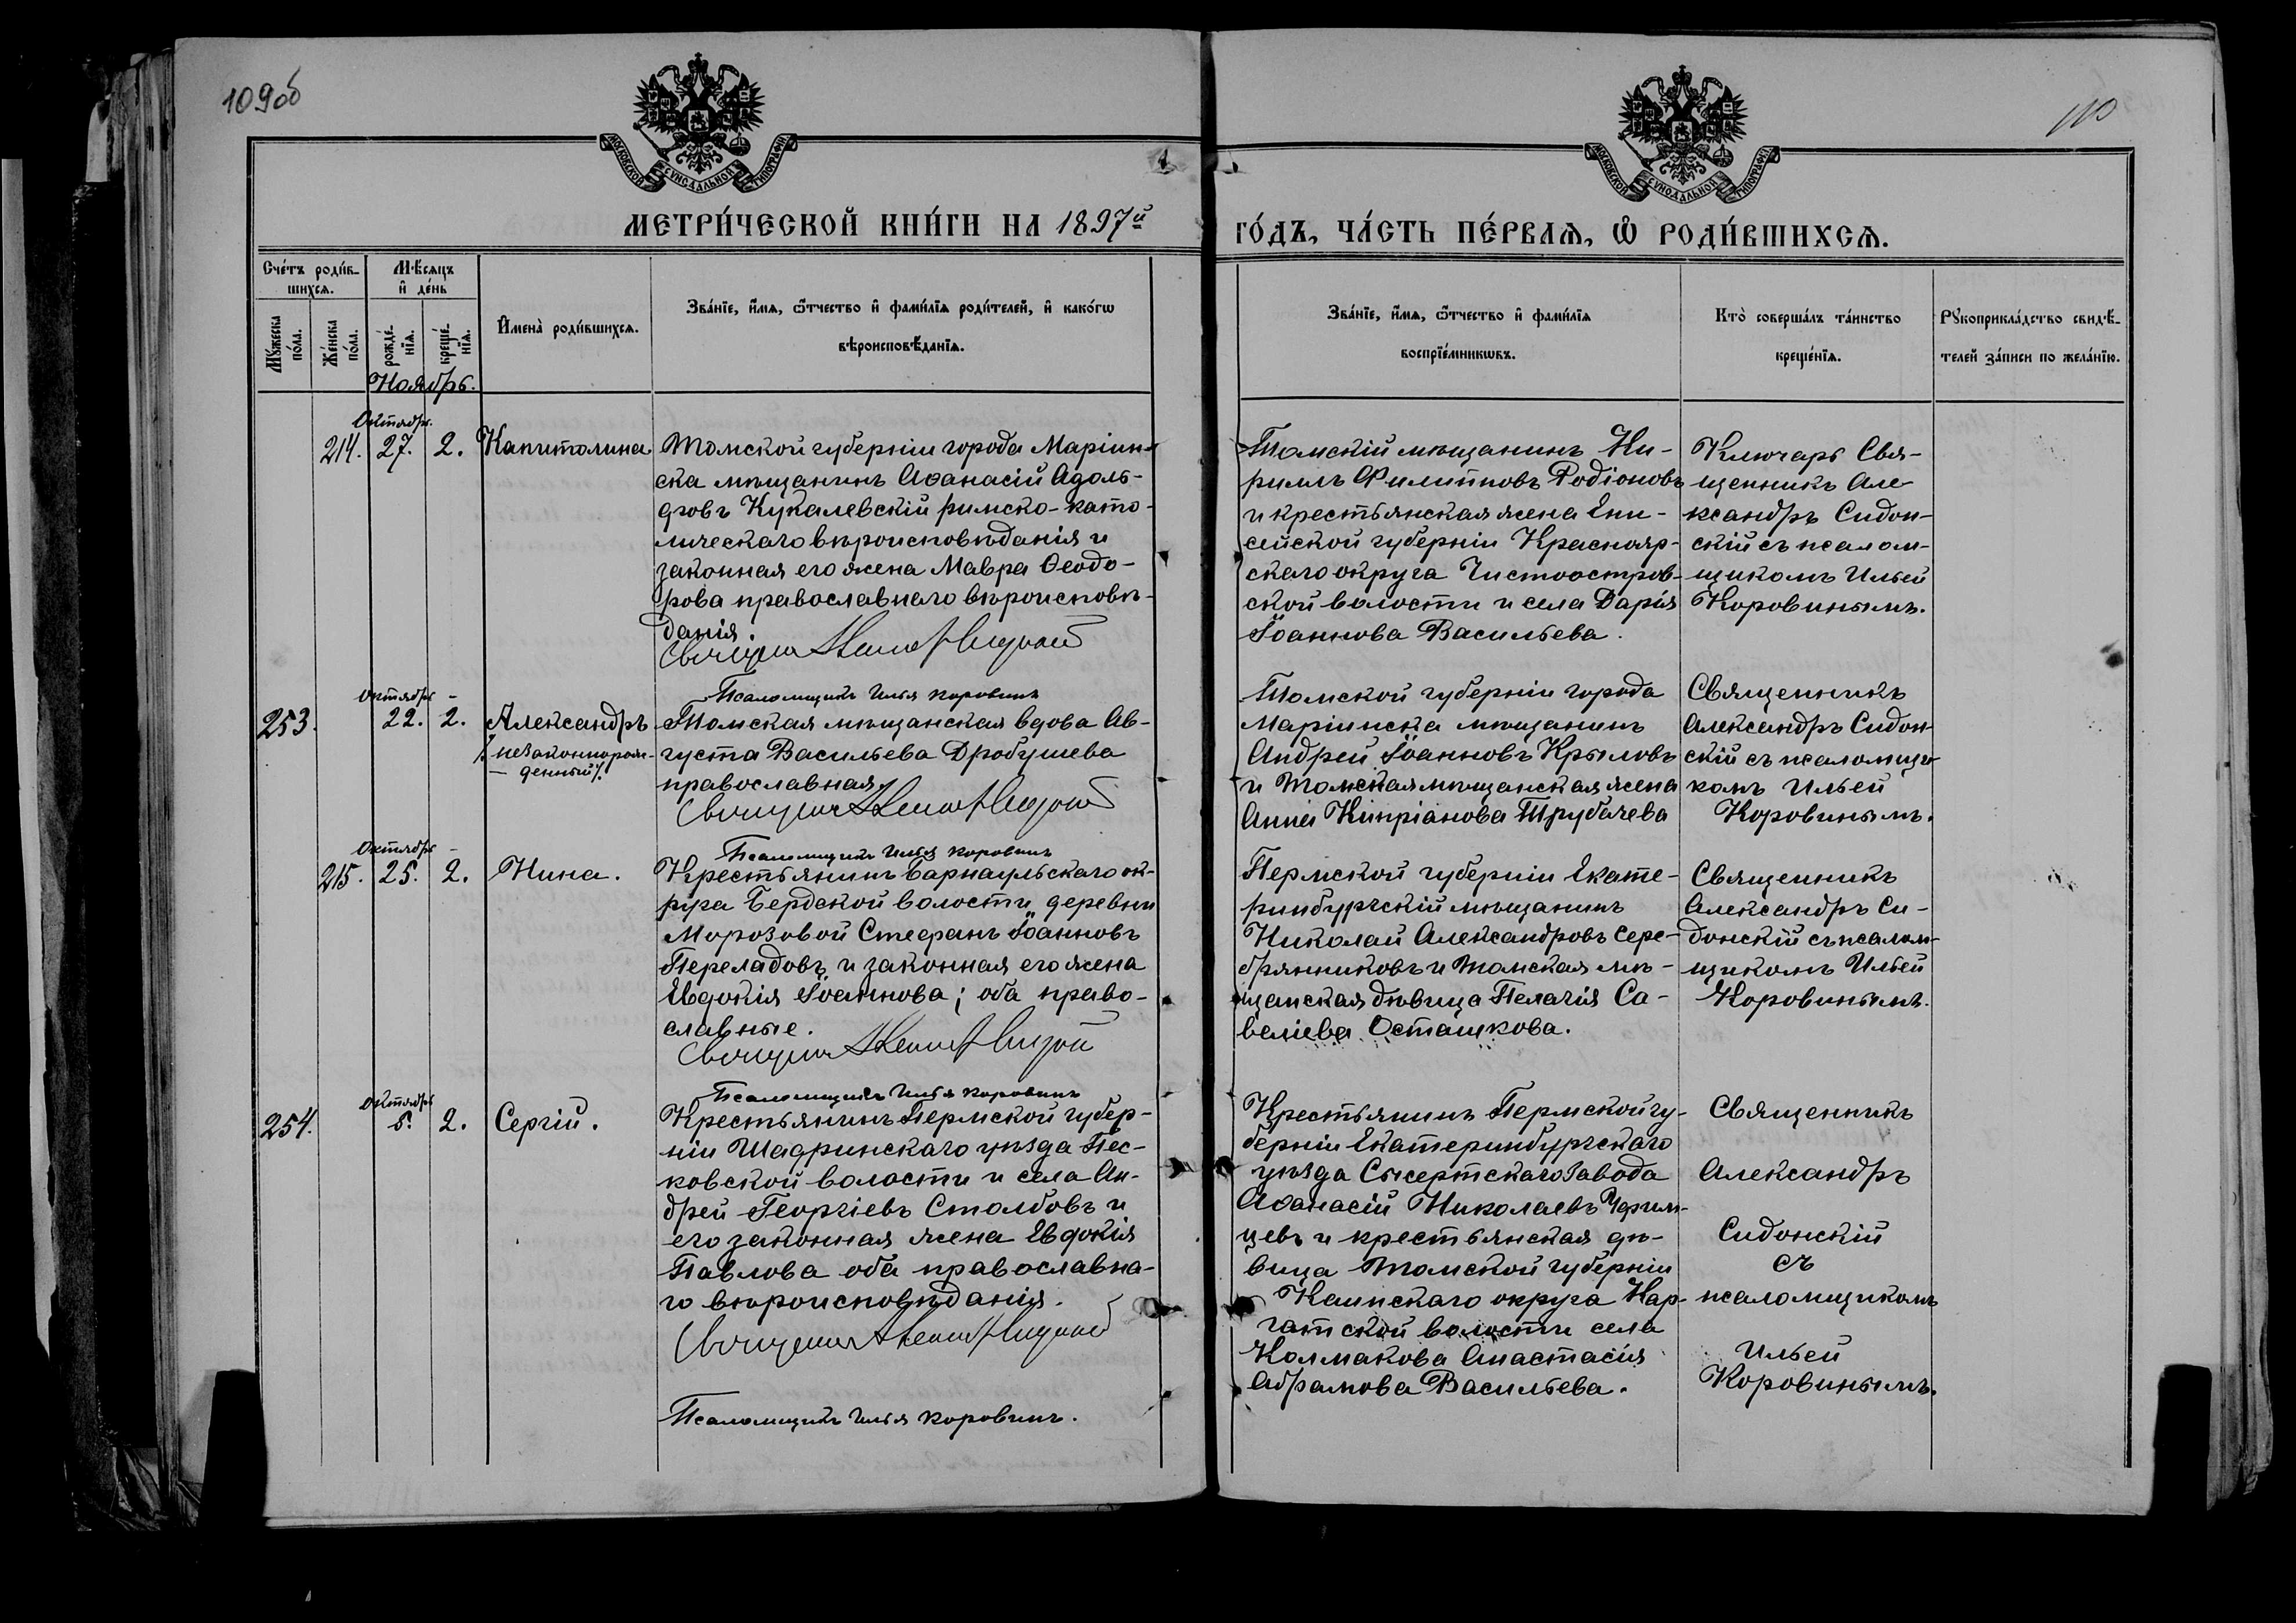 109об
110
МОСКОВСКОЙ СѴНОДАЛЬНОЙ ТИПОГРАФІИ
МОСКОВСКОЙ СѴНОДАЛЬНОЙ ТИПОГРАФІИ
МЕТРИ́ЧЕСКОЙ КНИ́ГИ НА 1897й
ГО́ДЪ, ЧА́СТЬ ПЕ́РВАѦ, Ѽ РОДИ́ВШИХСѦ.
Сче́тъ роди́в-
шихсѧ.
Мѣ́сѧцъ
и҆ де́нь
Мꙋ́жеска
по́ла.
Же́нска
по́ла.
рожде́-
нїѧ.
креще́-
нїѧ.
И҆мена̀ роди́вшихсѧ.
Зва́нїе, и҆́мѧ, ѻ҆́тчество и҆ фами́лїѧ роди́телей, и҆ како́гѡ
вѣроисповѣ́данїѧ.
Зва́нїе, и҆́мѧ, ѻ҆́тчество и҆ фами́лїѧ
воспрїе́мникѡвъ.
Кто̀ соверша́лъ та́инство
креще́нїѧ.
Рꙋкоприкла́дство свидѣ́-
телей за́писи по жела́нїю.
Ноябрь.
Октябрь.
214. 27. 2. Капитолина
Томской губерніи города Маріин-
ска мѣщанинъ Аѳанасій Адоль-
фовъ Кукалевскій римско-като-
лическаго вѣроисповѣданія и
законная его жена Мавра Ѳеодо-
рова православнаго вѣроисповѣ-
данія.
Псаломщикъ Илья Коровинъ
Томскій мѣщанинъ Ки-
риллъ Филипповъ Родіоновъ
и крестьянская жена Ени-
сейской губерніи Краснояр-
скаго округа Чистоостров-
ской волости и села Дарія
Іоаннова Васильева.
Ключарь Свя-
щенникъ Але
ксандръ Сидон-
скій съ псалом-
щикомъ Ильей
Коровинымъ.
Октябрь -
253. 22. 2. Александръ
/: незаконнорож-
- денный :/
Томская мѣщанская вдова Ав-
густа Васильева Дробушева
православная
Псаломщикъ Илья Коровинъ
Томской губерніи города
Маріинска мѣщанинъ
Андрей Іоанновъ Крыловъ
и Томская мѣщанская жена
Анна Кипріанова Трубачева
Священникъ
Александръ Сидон-
скій съ псаломщи-
комъ Ильей
Коровинымъ.
Октябрь -
215. 25. 2. Нина.
Крестьянинъ Барнаульскаго ок-
руга Бердской волости деревни
Морозовой Стефанъ Іоанновъ
Переладовъ и законная его жена
Евдокія Іоаннова; оба право-
славные.
Псаломщикъ Илья Коровинъ
Пермской губерніи Екате-
ринбургскій мѣщанинъ
Николай Александровъ Сере-
брянниковъ и Томская мѣ-
щанская дѣвица Пелагія Са-
веліева Осташкова.
Священникъ
Александръ Си-
донскій съ псалом-
щикомъ Ильей
Коровинымъ.
Октябрь
254. 5. 2. Сергій.
Крестьянинъ Пермской губер-
ніи Шадринскаго уѣзда Пес-
ковской волости и села Ан-
дрей Георгіевъ Столбовъ и
его законная жена Евдокія
Павлова оба православна-
го вѣроисповѣданія.
Псаломщикъ Илья Коровинъ.
Крестьянинъ Пермской гу-
берніи Екатеринбургскаго
уѣзда Сысертскаго завода
Аѳанасій Николаевъ Уфим-
цевъ и крестьянская дѣ-
вица Томской губерніи
Каинскаго округа Кар-
гатской волости села
Колмакова Анастасія
Абрамова Васильева.
Священникъ
Александръ
Сидонскій
съ
псаломщикомъ
Ильей
Коровинымъ.